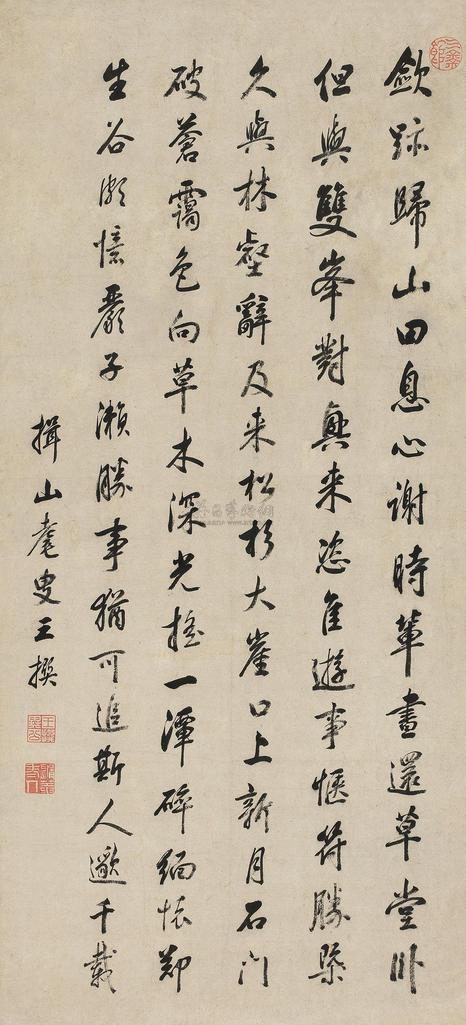 斂跡歸山田息心謝時輩晝還草堂卧
但與雙峯對興来恣佳遊事愜符勝槩
久與林壑辭及来松杉大崖口上新月石门
破蒼靄色向草木深光摇一潭碎緬懷鄭
生谷頗憶嚴子瀨勝事猶可追斯人邈千載
揖山耄叟王撰